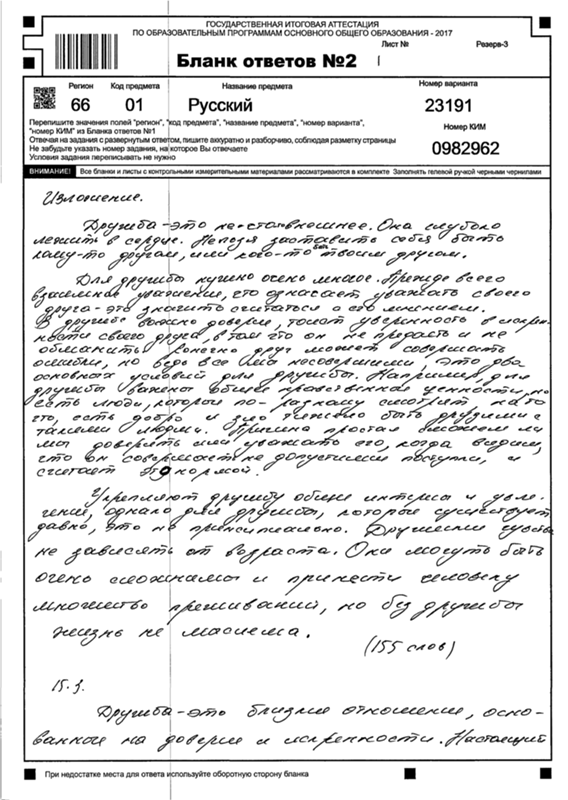 ГОСУДАРСТВЕННАЯ ИТОГОВАЯ АТТЕСТАЦИЯ
ПО ОБРАЗОВАТЕЛЬНЫМ ПРОГРАММАМ ОСНОВНОГО ОБЩЕГО ОБРАЗОВАНИЯ - 2017
Лист № Резерв-3
Бланк ответов №2
Регион Код предмета Название предмета Номер варианта
66 01 Русский 23191
Перепишите значения полей "регион", "код предмета", "название предмета", "номер варианта",
"номер КИМ" из Бланка ответов №1
Отвечая на задания с развернутым ответом, пишите аккуратно и разборчиво, соблюдая разметку страницы
Не забудьте указать номер задания, на которое Вы отвечаете
Условия задания переписывать не нужно
Номер КИМ
0982962
ВНИМАНИЕ! Все бланки и листы с контрольными измерительными материалами рассматриваются в комплекте Заполнять гелевой ручкой черными чернилами
Изложение.
Дружба-это не Она глубоко
лежить в сердце. Нельзя заставить себя быть
кому-то другом, или кого-то быть твоим другом.
Для дружбы нужно очень многое. Прежде всего
взаемное уважение, что означает уважать своего
друга-это значить считаться с его мнением.
В дружбе важно доверие, тоист уверенность в искрен-
ности своего друга, в том что он не предасть и не
обманить. Конечно друг может совершать
ошибки, но ведь все мы несовершении, это два
основных условий для дружбы. Например, для
дружбы важны общие нравственая ценности, но
есть люди, которые по-разному смотрят на то
что, есть добро и зло тяжело быть друзими с
такими людми. Причина простая сможем ли
мы доверять или уважать его, когда видим,
что он совершает не допустимии поступки, и
считает это нормой.
Укрепляют дружбу общие интересы и увле-
чения, однако для дружбы, которые существует
давно, это не принсипиально. Дружеские чувства
не зависять от возраста. Они могуть быть
очень сложнами и принести человеку
множиство преживаний, но без дружбы
жизнь не
(155 слов)
15.3.
Дружба-это близкии отношение, осно-
ванкои на доверии и искренности. Настоящий
При недостатке места для ответа используйте оборотную сторону бланка